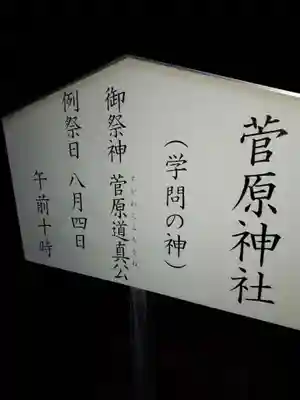 菅原神社
(学問の神)
御祭神 菅原道真公
例祭日 八月四日
午前十時